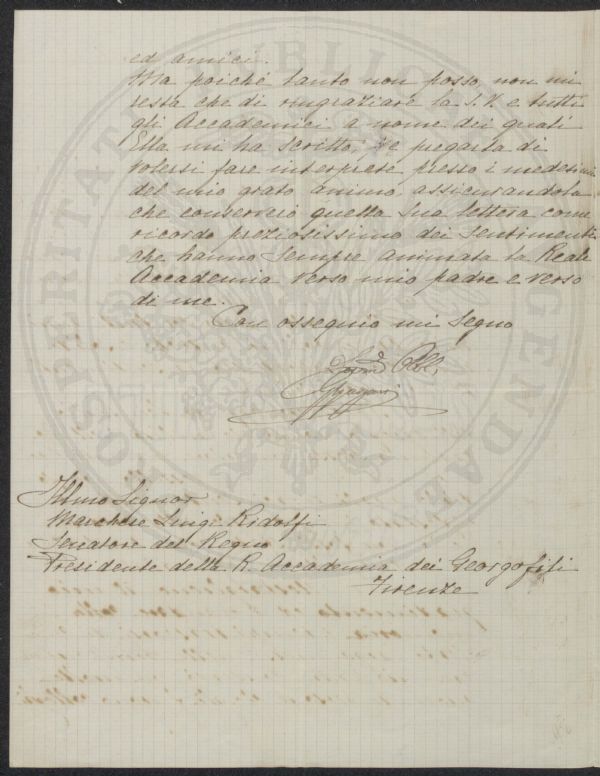 ed amici.
Ma poiché tanto non posso, non mi
resta che di ringraziare la S. V. e tutti
gli Accademici a nome dei quali
Ella mi ha scritto, e pregarla di
volersi fare interprete presso i medesimi
del mio grato animo, assicurandola
che conserverò questa Sua lettera come
ricordo preziosissimo dei sentimenti
che hanno sempre animata la Reale
Accademia verso mio padre e verso
di me.
Con ossequio mi segno
Obbl.
Illmo Signor
Marchese Luigi Ridolfi
Senatore del Regno
Presidente della R. Accademia dei Georgofili
Firenze
PROSPERITATI PUBLICAE AUGENDAE